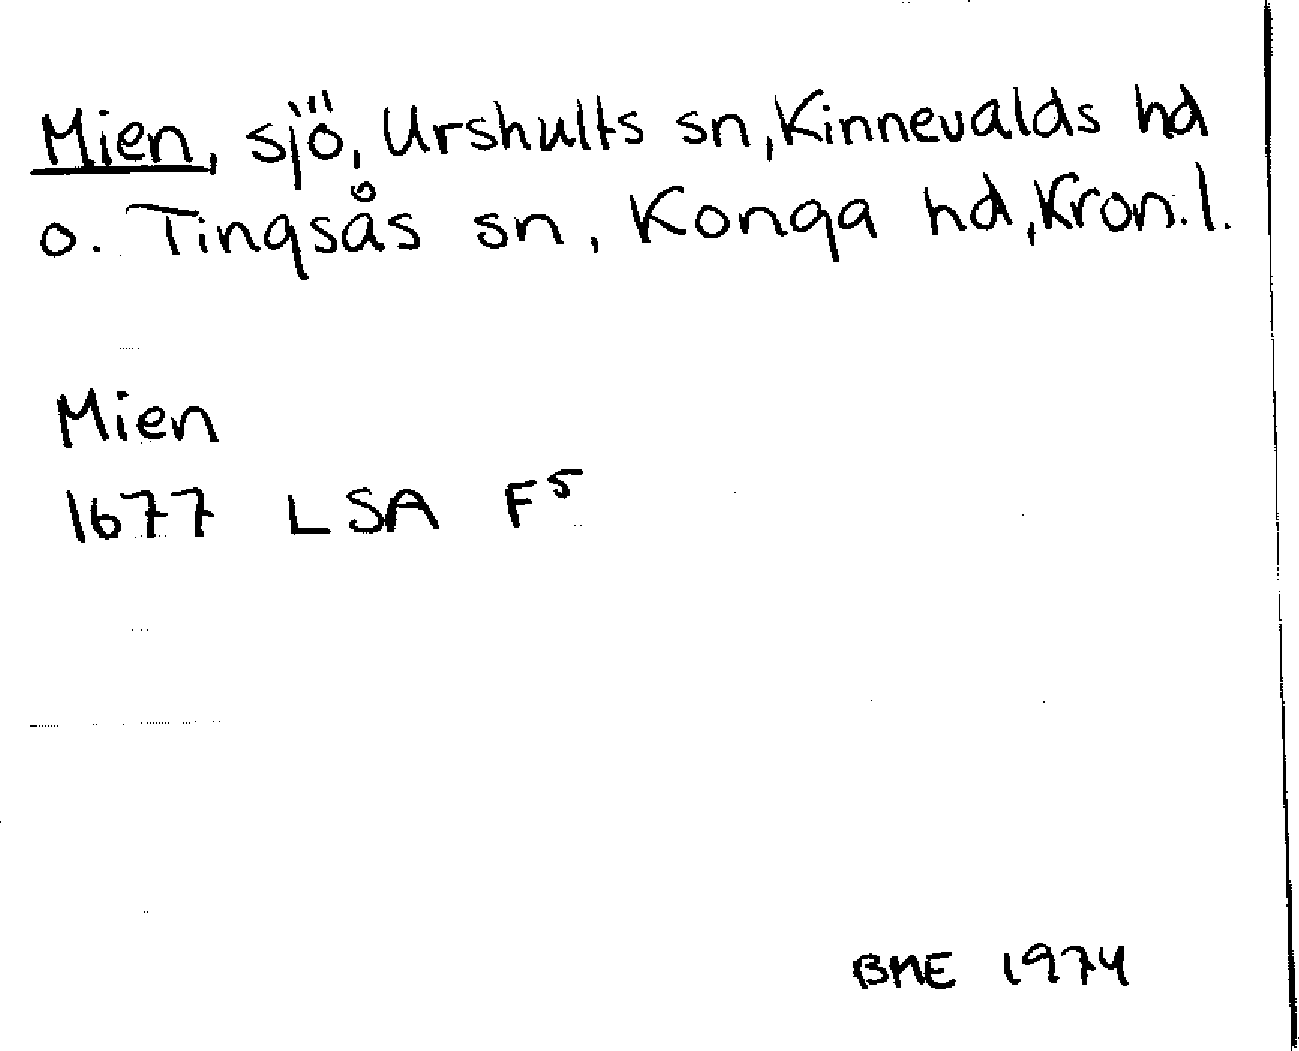 Mien, sjö, Urshults sn, Kinnevalds hd
o. Tingsås sn, Konga hd, Kron.l.
Mien
1677 LSA F⁵
BME 1974